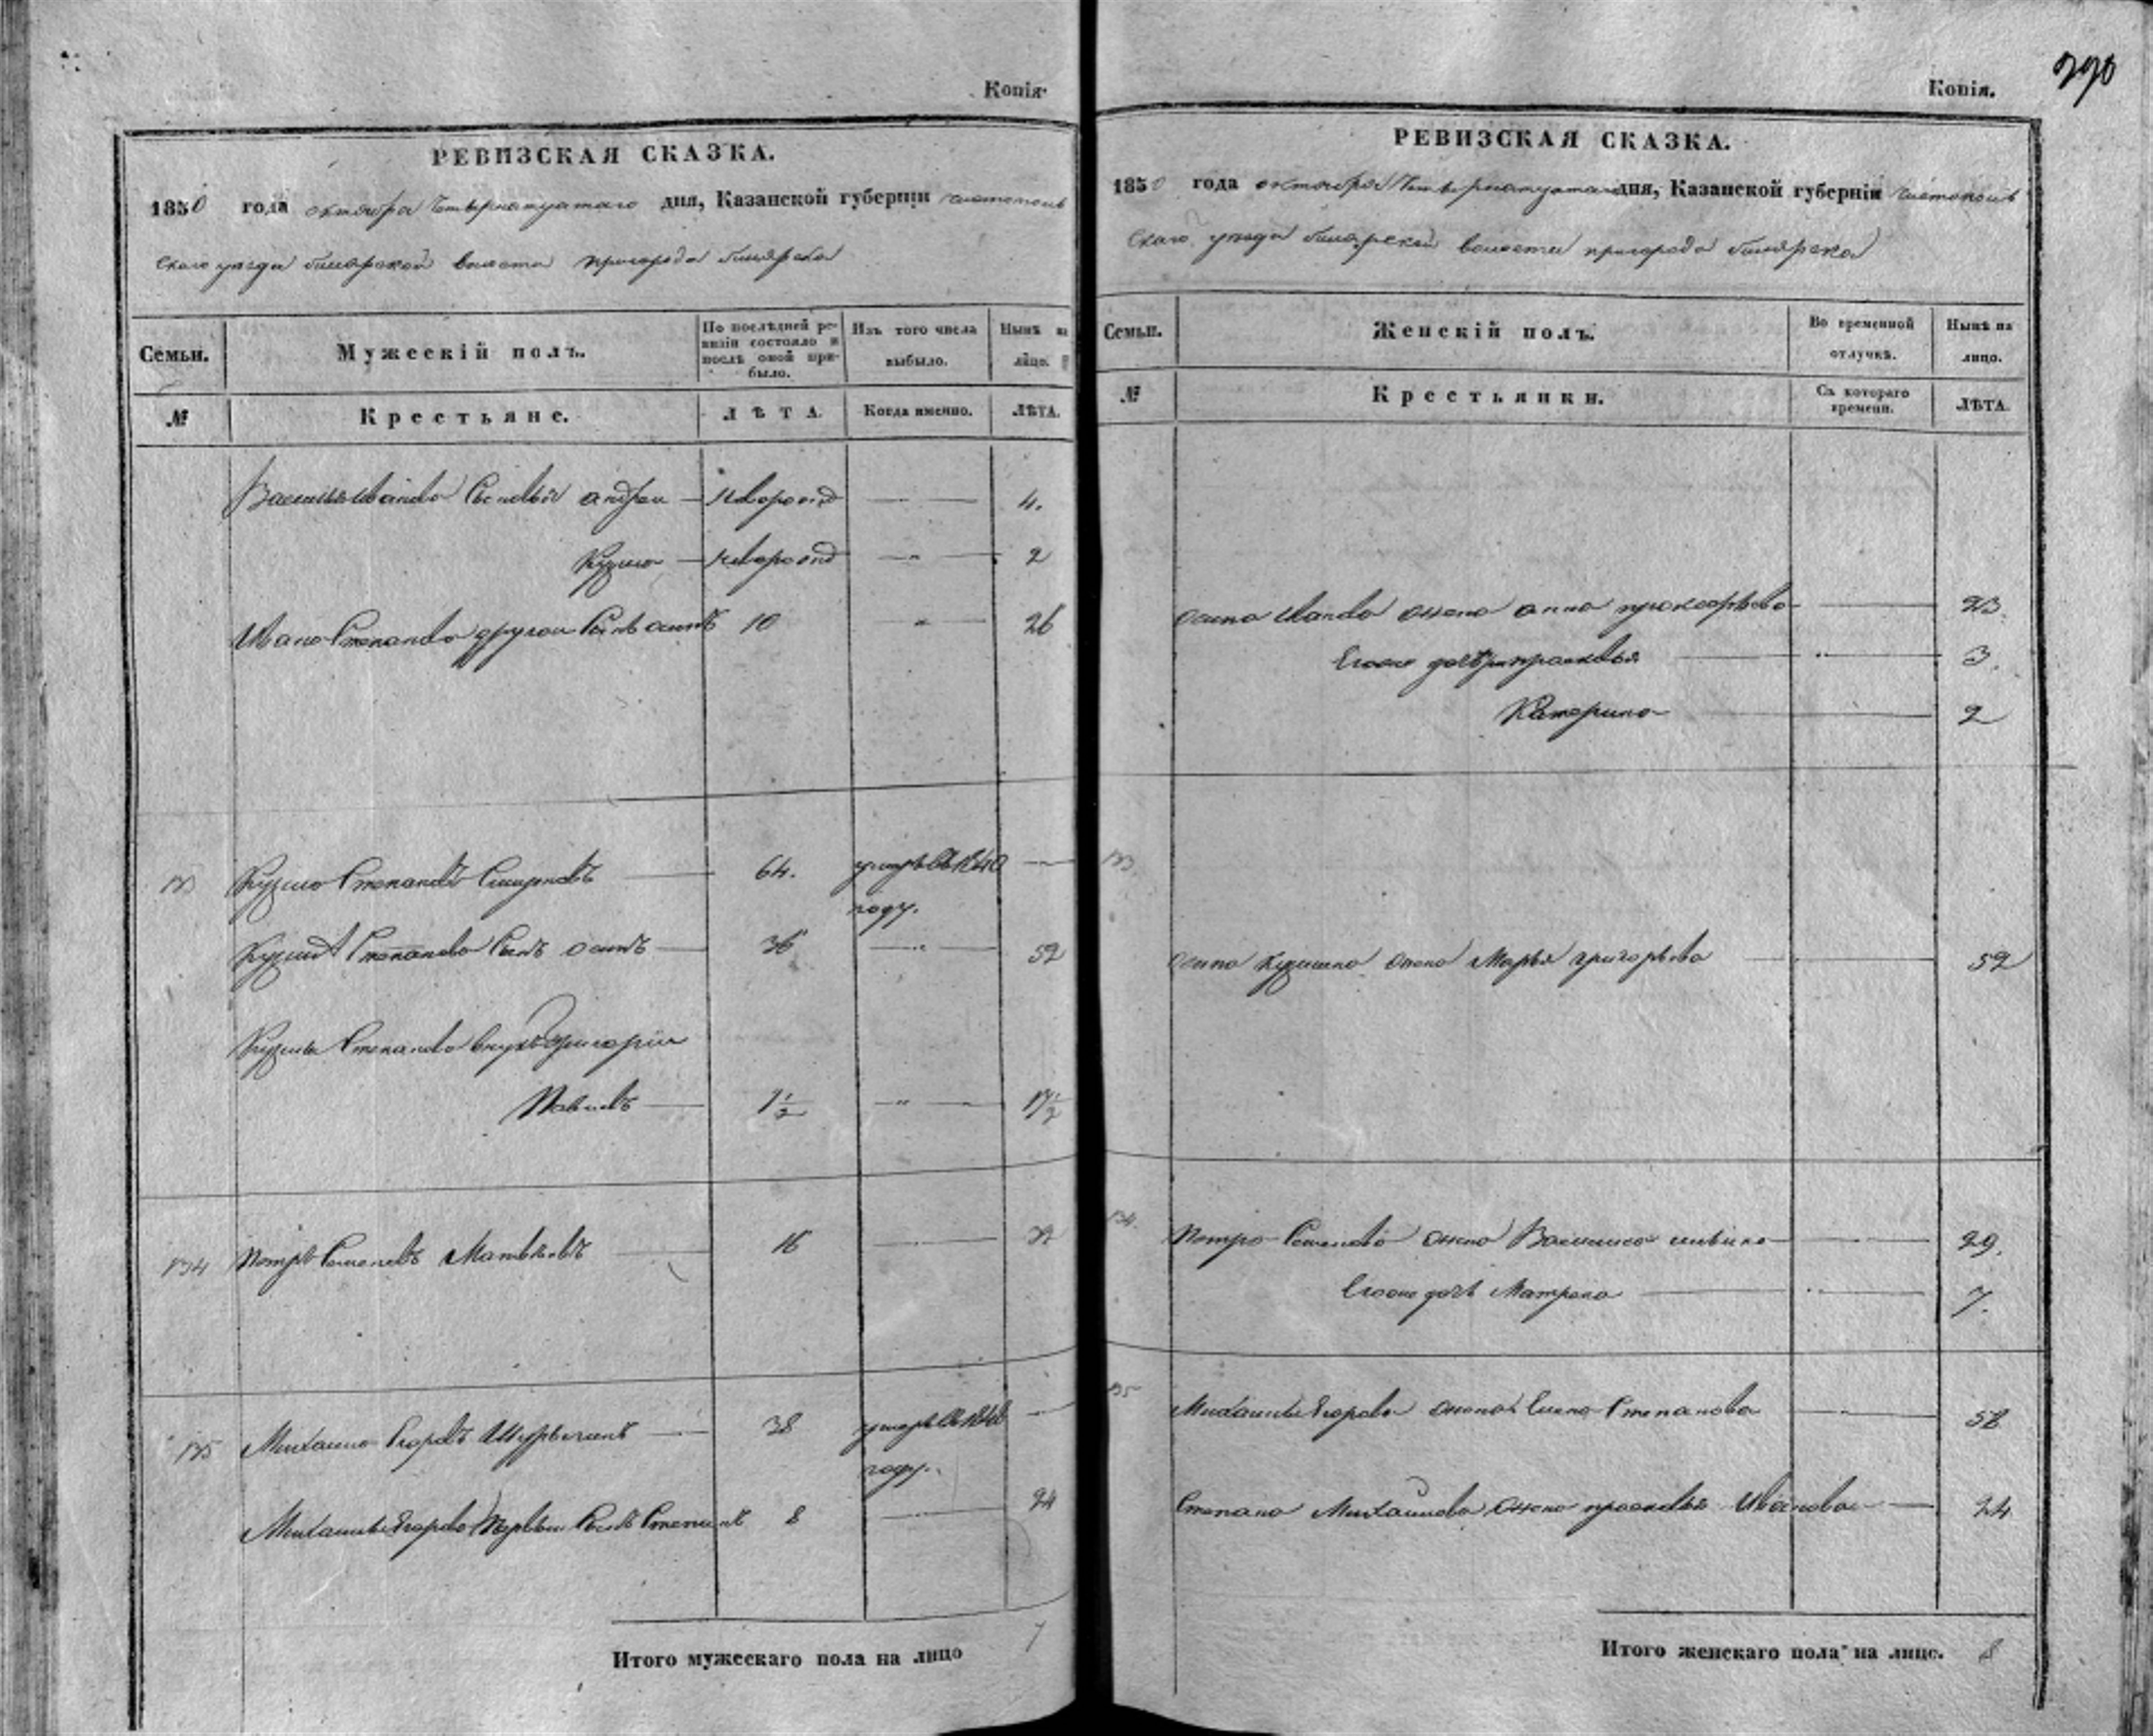 Копія.
РЕВИЗСКАЯ СКАЗКА.
1850 года октября Четырнатцатаго дня, Казанской губерніи чистополь
скаго уезда билярской волости пригорода билярска
Семьи. Мужескій полъ. По послѣдней ре- Изъ того числа Нынѣ на
визіи состояло и
послѣ оной при- выбыло. лицо.
было.
№ Крестьяне. ЛѢТА. Когда именно. ЛѢТА.
Василья Иванова Сыновья андрей — новорожд — 4.
Кузма — новорожд — 2
Ивана Степанова другой Сынъ осипъ 10 26
Кузма Степановъ Смирновъ — 64. умеръ въ 1840 —
году.
Кузмы Степанова Сынъ осипъ — 36 — 52
Кузмы Степанова внукъ григорій
Павловъ — 1½ — 17½
134 Петръ Семеновъ Матвѣевъ — 16 —
135 Михайло Егоровъ — 38 умеръ въ —
году.
Михайлы Егорова Первый Сынъ Степанъ 8 — 24
Итого мужескаго пола на лицо 7
Копія.
РЕВИЗСКАЯ СКАЗКА.
1850 года октября Четырнатцатаго дня, Казанской губерніи чистополь
скаго уезда билярской волости пригорода билярска
Семьи. Женскій полъ. Во временной Нынѣ на
отлучкѣ. лицо.
№ Крестьянки. Съ котораго ЛѢТА.
времени.
осипа Иванова жена анна прокофьева — 23.
Егоже дочери прасковья — 3.
Катерина — 2
133
осипа Кузмина жена Марья григорьева — 52
134.
Петра Семенова жена Василиса — 29.
Егоже дочь Матрена — 7.
135
Михайлы Егорова жена Елена Степанова — 58
Степана Михайлова жена прасковья Иванова — 24
Итого женскаго пола на лицо. 8